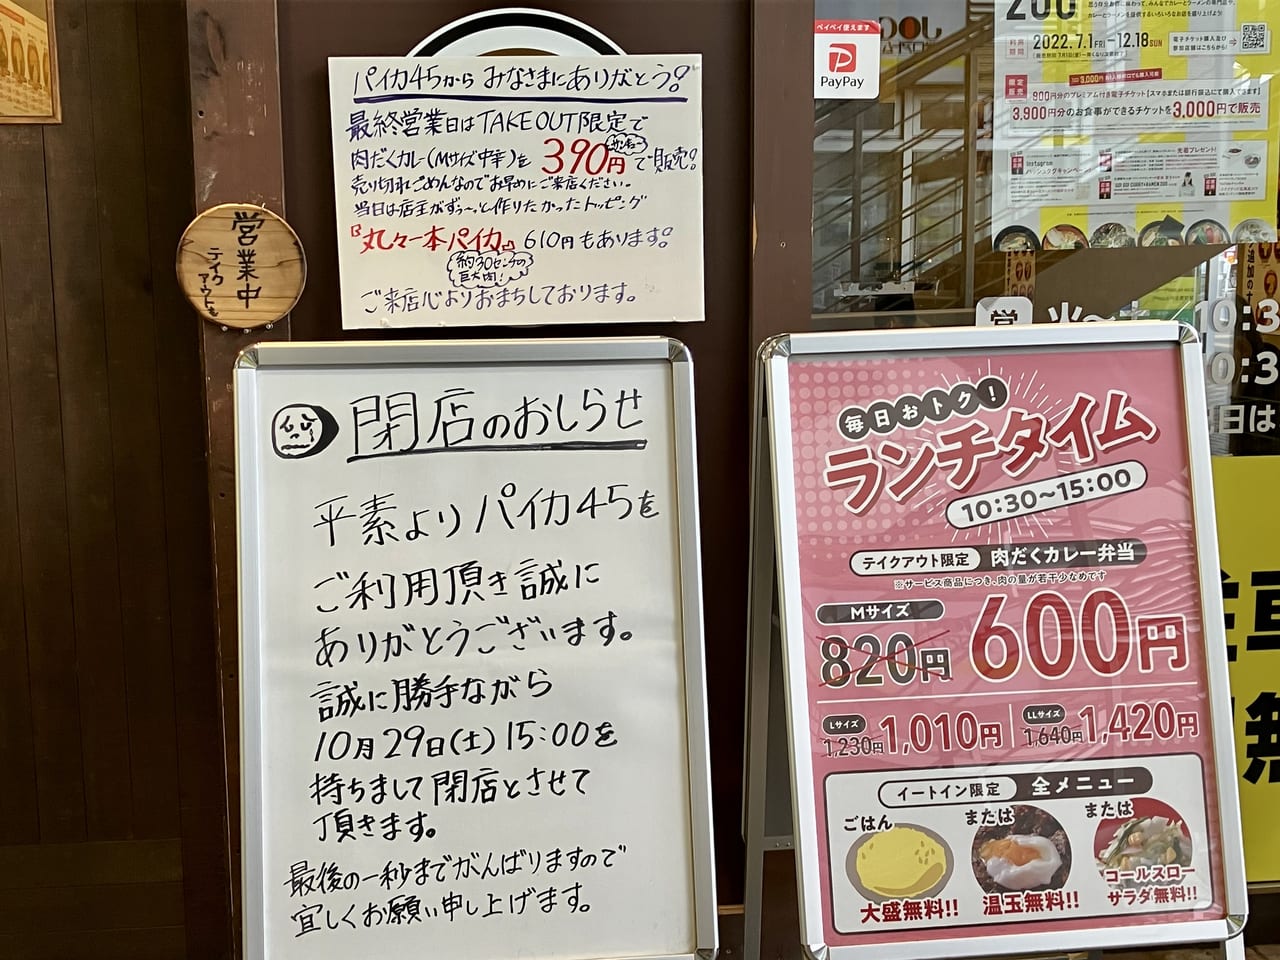 パイカ45から みなさまにありがとう!
最終営業日はTAKEOUT限定で
肉だくカレー(Mサイズ中辛)を390円で販売!
サンキュー
売り切れごめんなのでお早めにご来店ください。
当日は店主がずぅ〜っと作りたかったトッピング
『丸々一本パイカ』610円もあります。
約30センチの
巨大肉!
ご来店心よりおまちしております。
営業中
テイク
アウトも
閉店のおしらせ
平素よりパイカ45を
ご利用頂き誠に
ありがとうございます。
誠に勝手ながら
10月29日(土)15:00を
持ちまして閉店とさせて
頂きます。
最後の一秒までがんばりますので
宜しくお願い申し上げます。
ペイペイ使えます
PayPay
200
2022.7.1 FRI 〜 12.18 SUN
限定
販売
900円分のプレミアム付き電子チケット
3,900円分のお食事ができるチケットを3,000円で販売
毎日おトク!
ランチタイム
10:30〜15:00
テイクアウト限定 肉だくカレー弁当
※サービス商品につき、肉の量が若干少なめです
Mサイズ
820円 600円
Lサイズ
1,230円 1,010円
LLサイズ
1,640円 1,420円
イートイン限定 全メニュー
ごはん
大盛無料!!
または
温玉無料!!
または
コールスロー
サラダ無料!!
営
火〜
10:3
10:3
日は